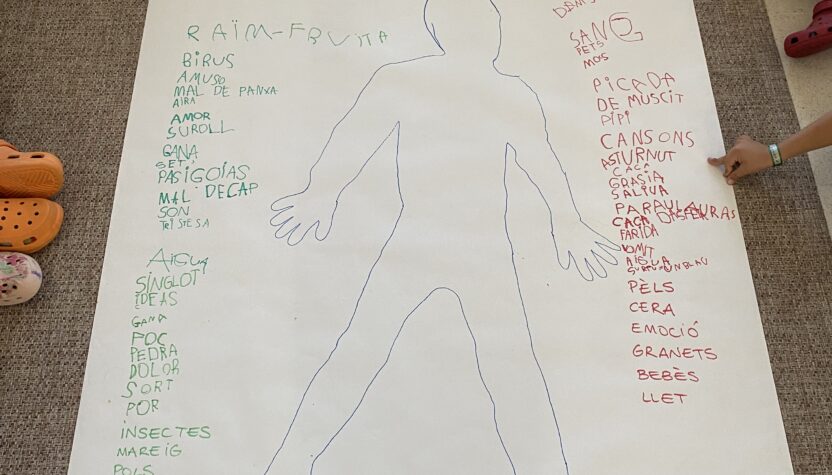 RAÏM-FRUITA
BIRUS
AMUSO
MAL DE PANXA
AIRA
AMOR
SUROLL
GANA
SET
PASIGOIAS
MAL DECAP
SON
TRISTESA
AIGUA
SINGLOT
IDEAS
GANA
POC
PEDRA
DOLOR
SORT
POR
INSECTES
MAREIG
POLS
SANG
PETS
MOS
PICADA
DE MUSCIT
PIPI
CANSONS
ASTURNUT
CACA
GRASIA
SALIVA
PARAULAS
CACA
FARIDA
VOMIT
AIGUA
PÈLS
CERA
EMOCIÓ
GRANETS
BEBÈS
LLET